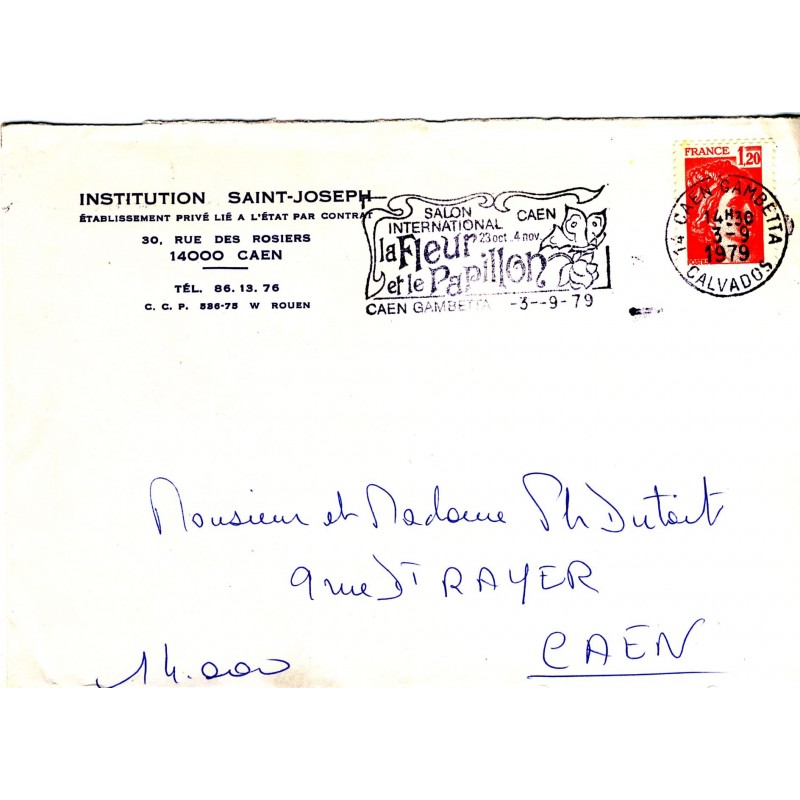 INSTITUTION SAINT-JOSEPH
ÉTABLISSEMENT PRIVÉ LIÉ A L'ÉTAT PAR CONTRAT
30, RUE DES ROSIERS
14000 CAEN
TÉL. 86.13.76
C. C. P. 536-75 W ROUEN
SALON CAEN
INTERNATIONAL
23 oct. 4 nov.
la Fleur
et le Papillon
CAEN GAMBETTA -3--9-79
FRANCE 1,20
14 CAEN GAMBETTA
14H30
3-9
1979
CALVADOS
Monsieur et Madame Ph Dutoit
9 rue Dr RAYER
14.000 CAEN